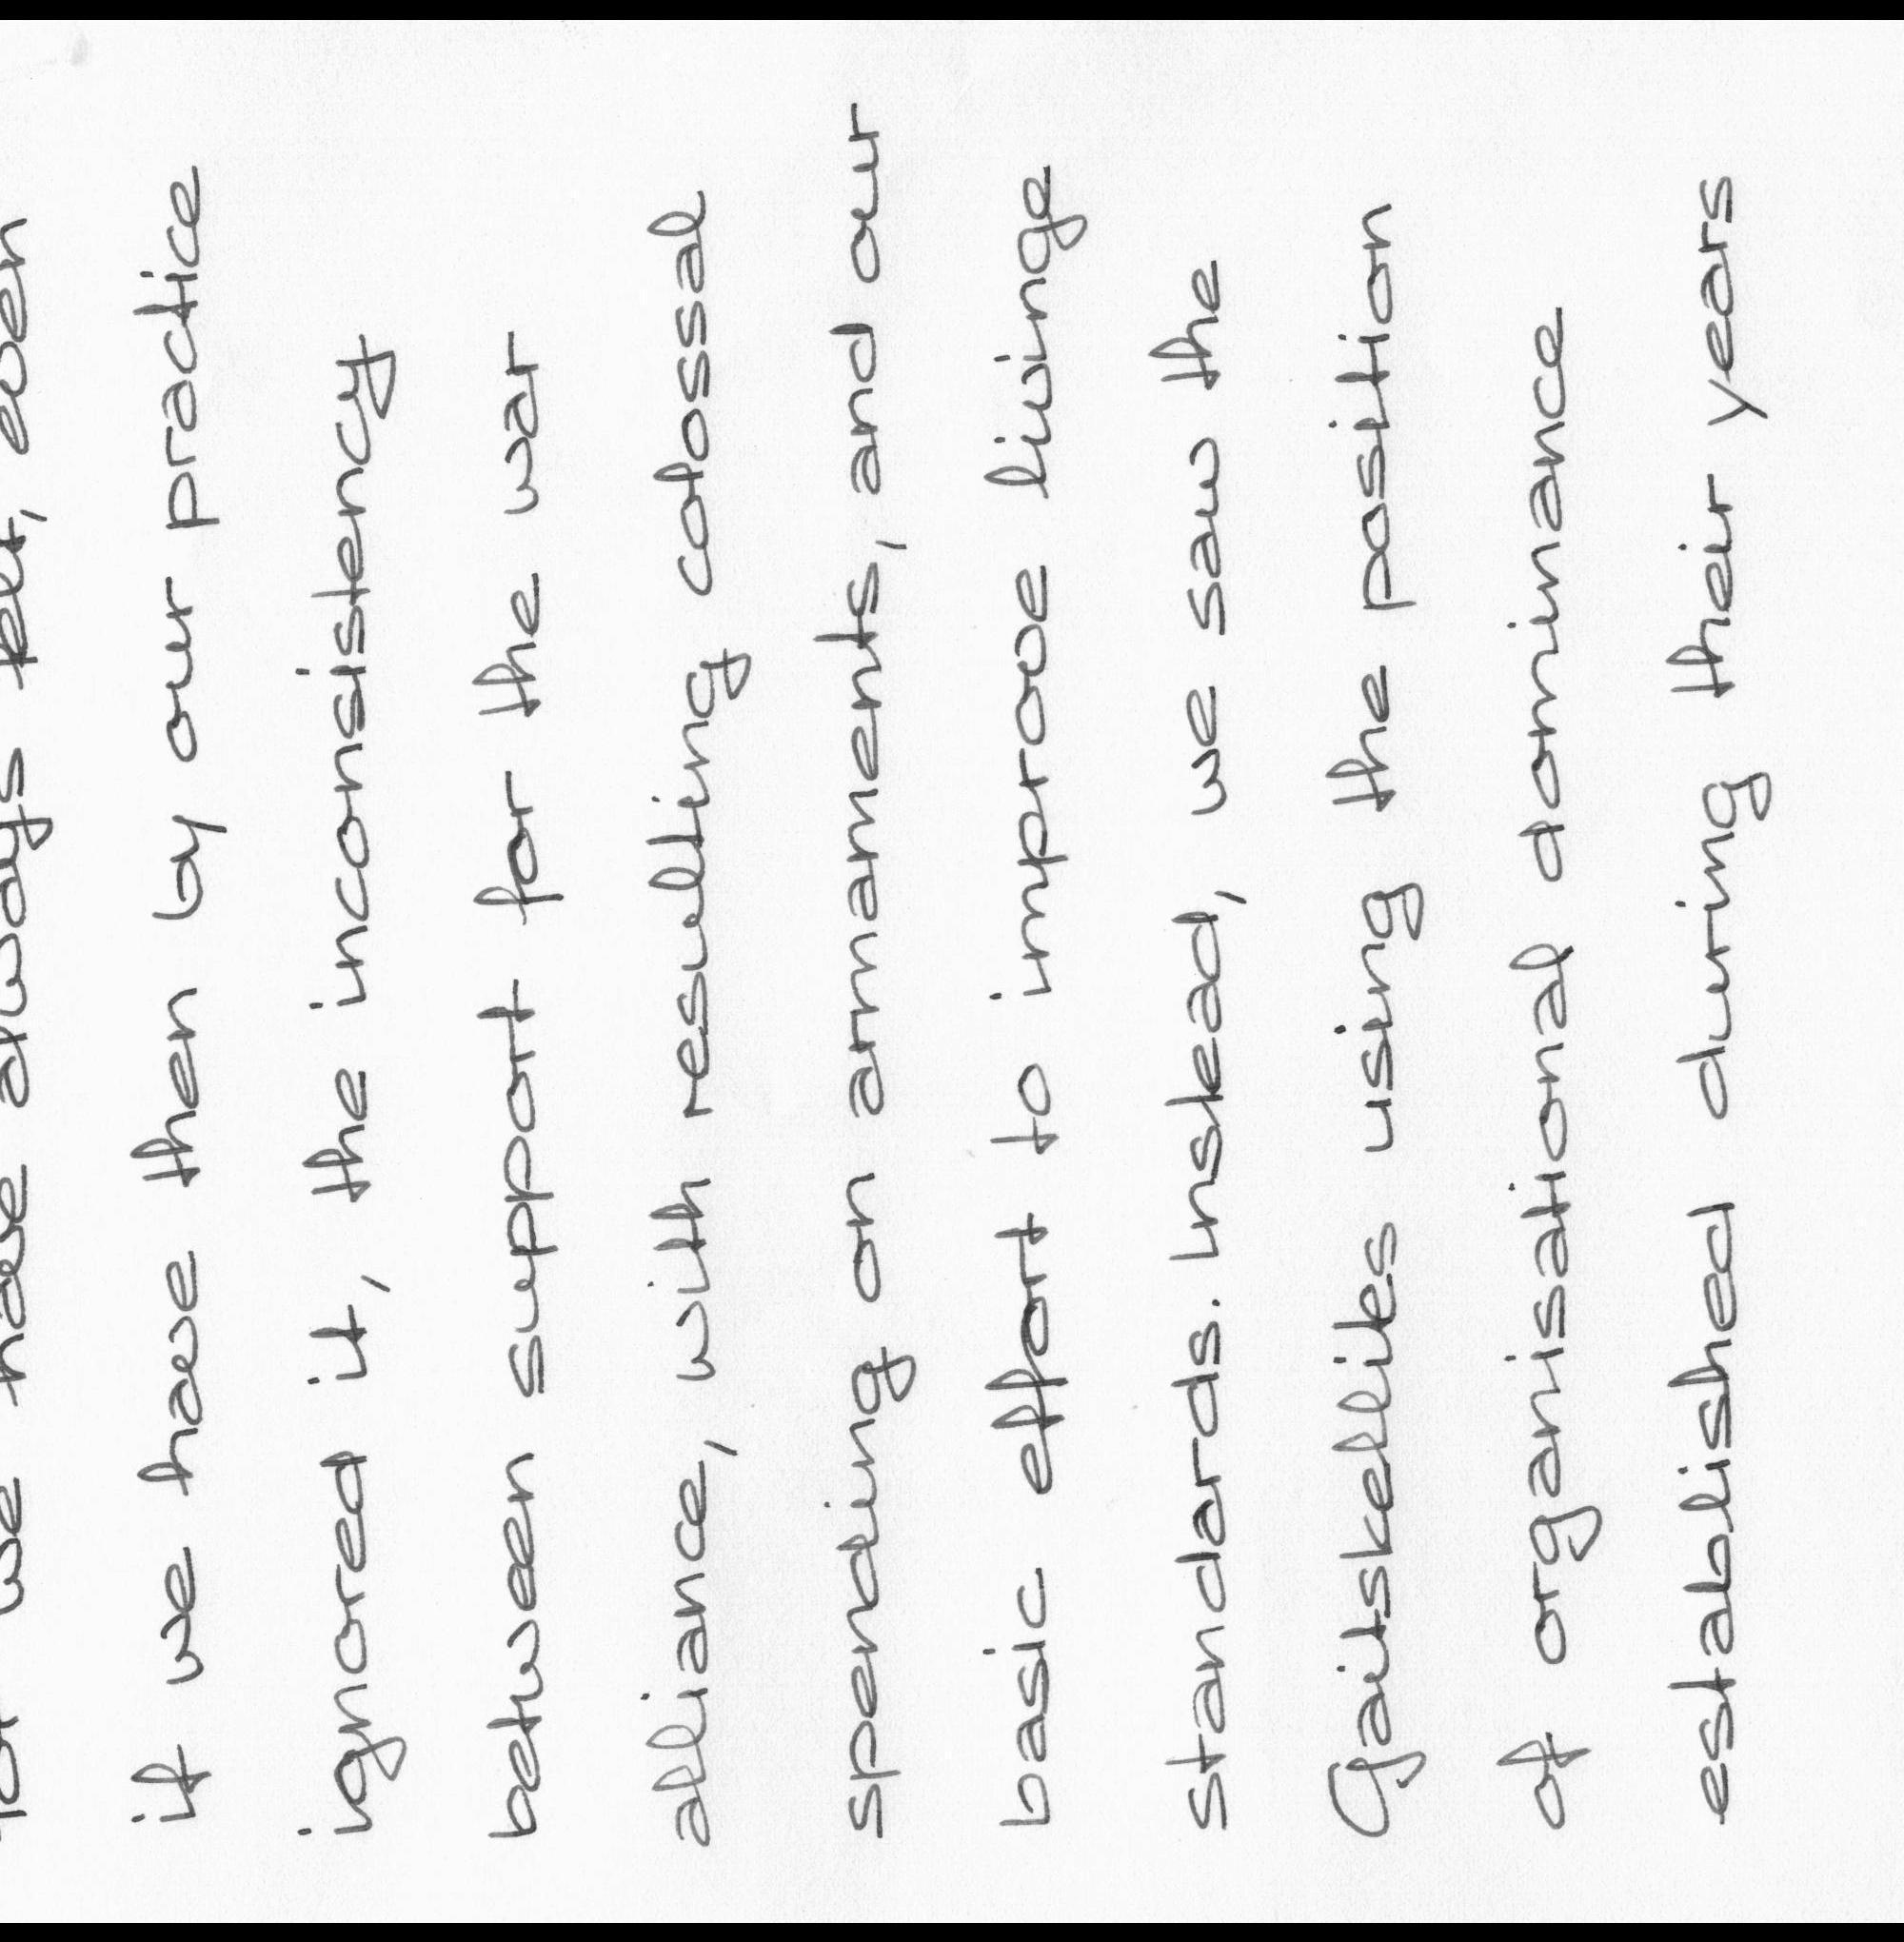 for we have always felt, even
if we have then by our practice
ignored it, the inconsistency
between support for the war
alliance, with resulting colossal
spending on armaments, and our
basic effort to improve livinge
standards. Instead, we saw the
Gaitskellites using the position
of organisational dominance
established during their years